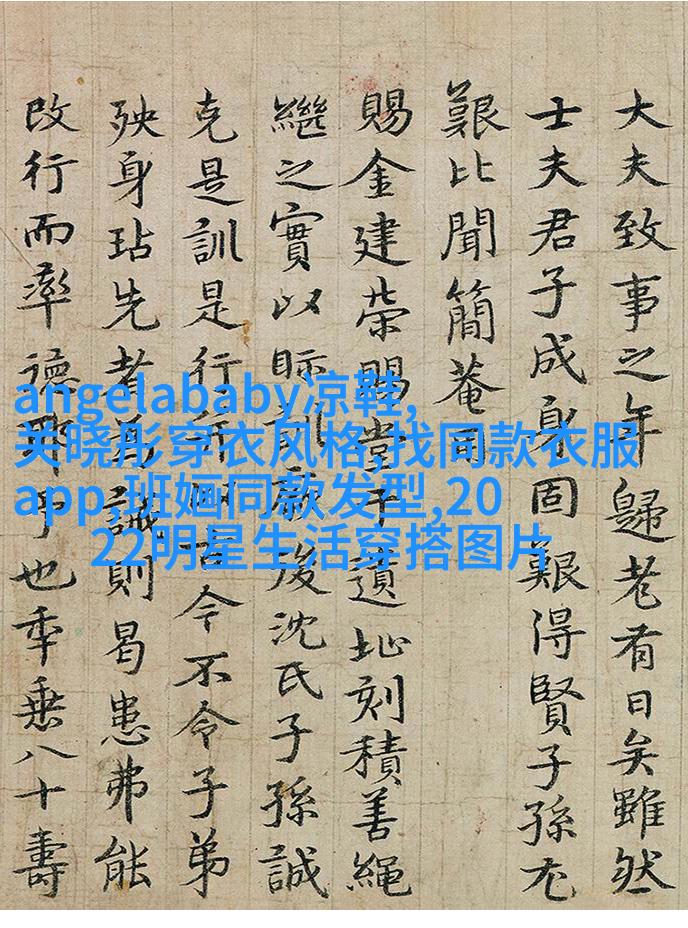 大夫致事之年歸老有日矣雖然
士夫君子成身固艱得賢子孫尤
艱比聞簡菴司
賜金建荣賜堂于遺址刻積善繩
繼之實以眎訓厥後沈氏子孫誠
克是訓是行古今不令子弟
殃身玷先者為誡則曷患弗能
改行而率德耶予也年垂八十壽
angelababy凉鞋,
关晓彤穿衣风格,找同款衣服
app,班婳同款发型,20
22明星生活穿搭图片